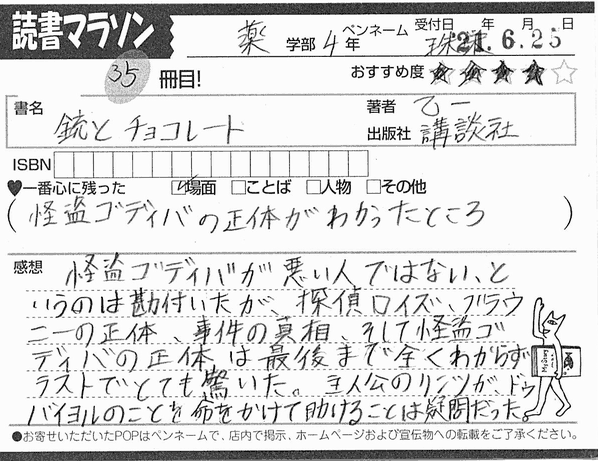 読書マラソン
薬 学部 4 年 ペンネーム 受付日 年 月 日
21.6.25
35 冊目! おすすめ度 ★★★★☆
書名 銃とチョコレート 著者 乙一
出版社 講談社
ISBN
♥一番心に残った ☑場面 □ことば □人物 □その他
(怪盗ゴディバの正体がわかったところ)
感想 怪盗ゴディバが悪い人ではない、と
いうのは勘付いたが、探偵ロイズ、ブラウ
ニーの正体、事件の真相、そして怪盗ゴ
ディバの正体は最後まで全くわからず
ラストでとても驚いた。主人公のリンツが、ドゥ
バイヨルのことを命をかけて助けることは疑問だった。
●お寄せいただいたPOPはペンネームで、店内で掲示、ホームページおよび宣伝物への転載をご了承ください。